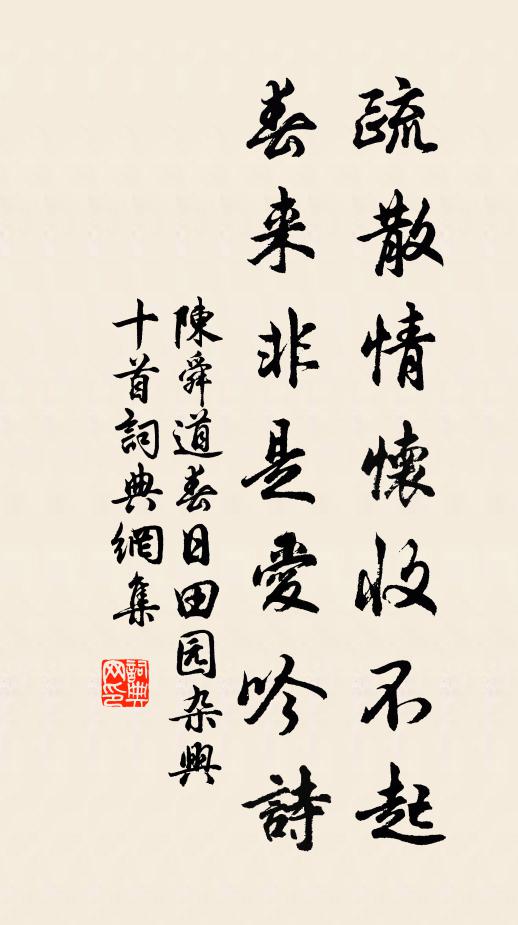 疏散情懷收不起
春来非是愛吟詩
陳舜道春日田园杂興
十首詞典網集
詞典网印